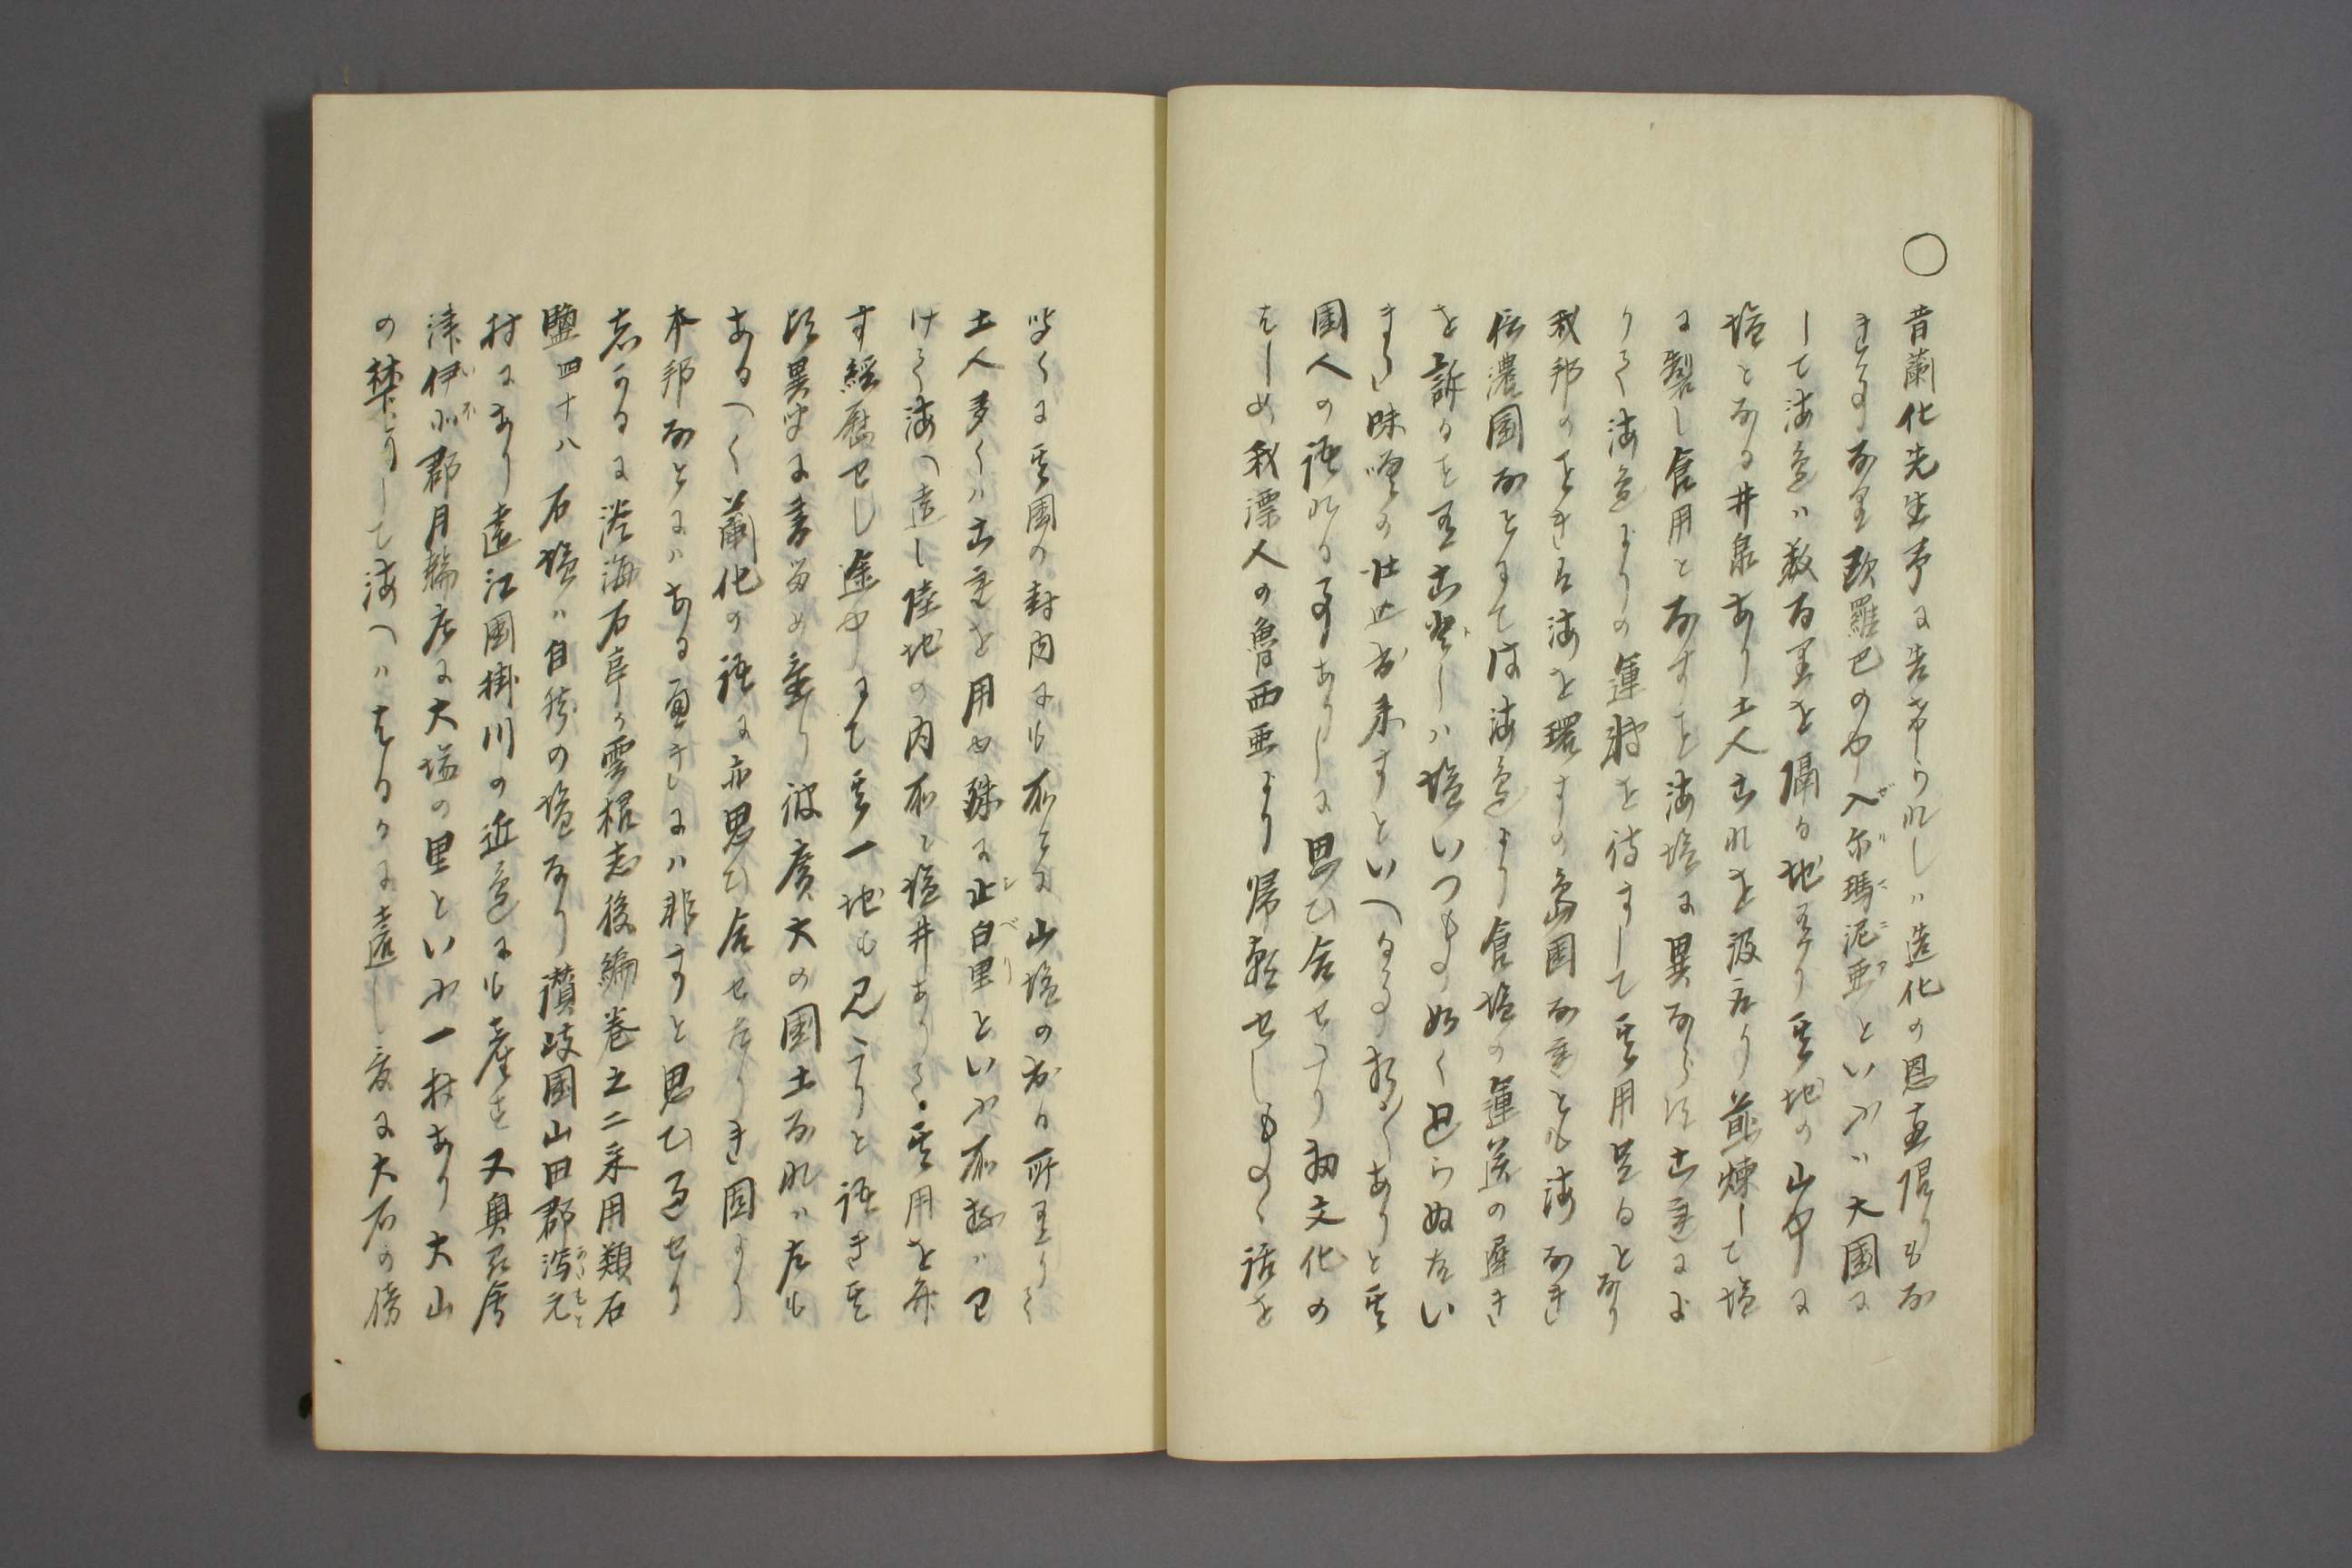 ○
昔蘭化先生予に告けられしハ造化の恩恵偏りもな
き事なり欧羅巴の中入尓瑪泥亜といふハ大国に
して海邊ハ数百里を隔る地あり其地の山中に
塩となる井泉あり土人これを汲取り煎煉して塩
に製し食用となすを海塩に異ならすこれによ
りて海邊よりの運輸を待すして其用足るとなり
我邦のときハ海を環すの島国なれとも海なき
信濃国なとにてハ海邊より食塩の運送の遅き
を訴るを吾されハ塩いつもの如く廻らぬたい
まし味噌の仕込出来すといへる事折々ありと其
国人の語れる事ありしに思ひ合せたり初文化の
はしめ我漂人の魯西亜より帰朝せしものゝ話を
聞くに其国の封内にも所々に山塩の出る所ありて
土人多くハこれを用ゆ殊に止白里といふ所抔ハ已
けて海へ遠し陸地の内所々塩井ありて其用を弁
す経歴せし途中にて其一地も見たりと語き其
頃異聞に書留め置り彼広大の国土なれハ左も
あるへく蘭化の語に亦思ひ合せたりき固より
本邦なとにハある事にハ非すと思ひ過せり
しかるに淡海石亭か雲根志後編巻之二采用類石
鹽四十八 石塩ハ自然の塩なり讃岐国山田郡潟元
村にあり遠江国掛川の近邊にも産す又奥州會
津伊北郡月輪庄に大塩の里といふ一村あり大山
の麓にして海へハはるかに遠し爰に大石の傍